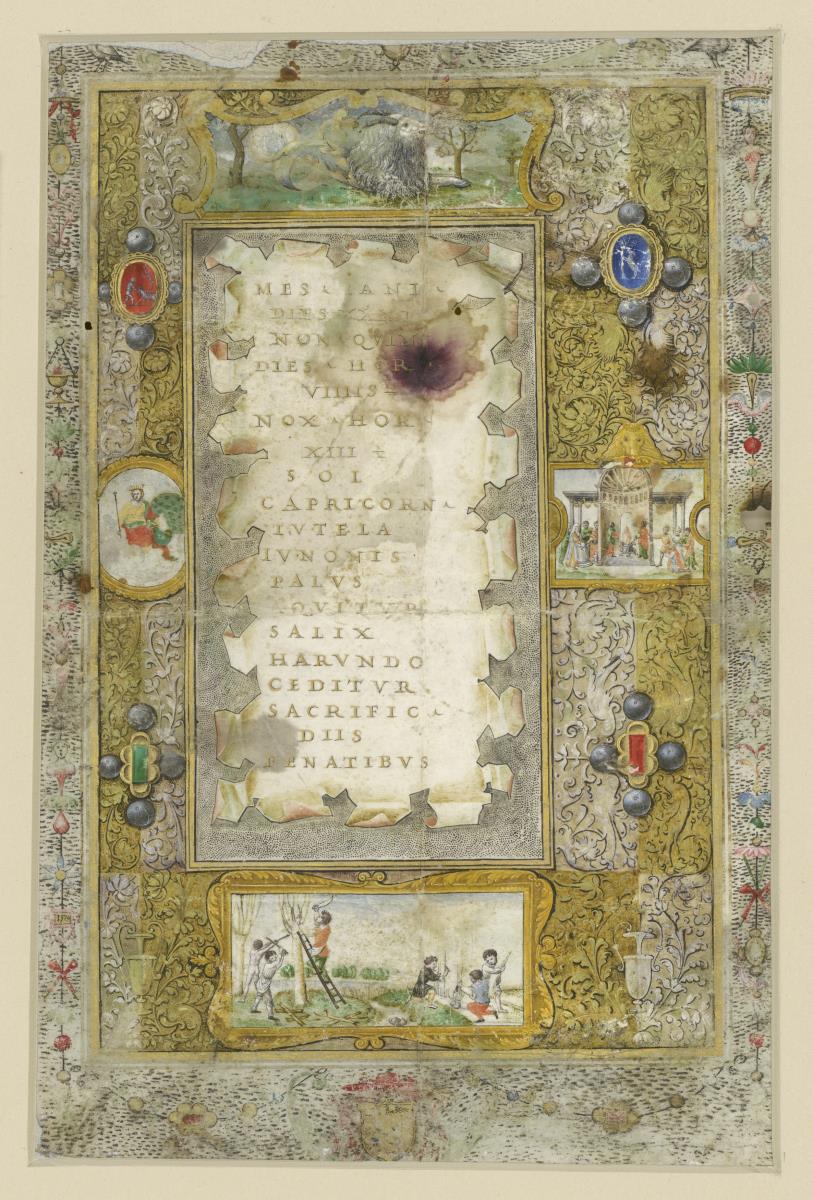 MES IANI
DIES XXXI
NON QVIN
DIES HOR
VIIIIS
NOX HOR
XIIII
SOL
CAPRICORN
TVTELA
IVNONIS
PALVS
AQVITVR
SALIX
HARVNDO
CEDITVR
SACRIFIC
DIIS
PENATIBVS